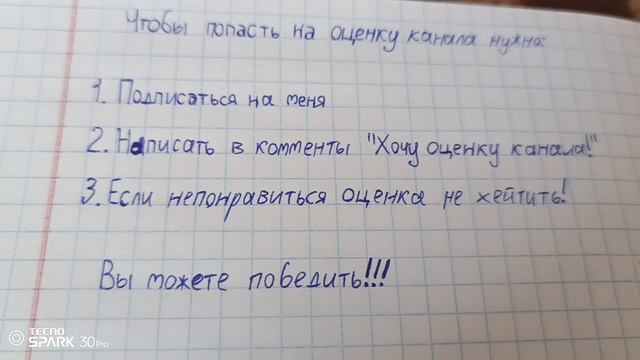 Чтобы попасть на оценку канала нужно:
1. Подписаться на меня
2. Написать в комменты "Хочу оценку канала!"
3. Если непонравиться оценка не хейтить!
Вы можете победить!!!
TECNO
SPARK 30Pro